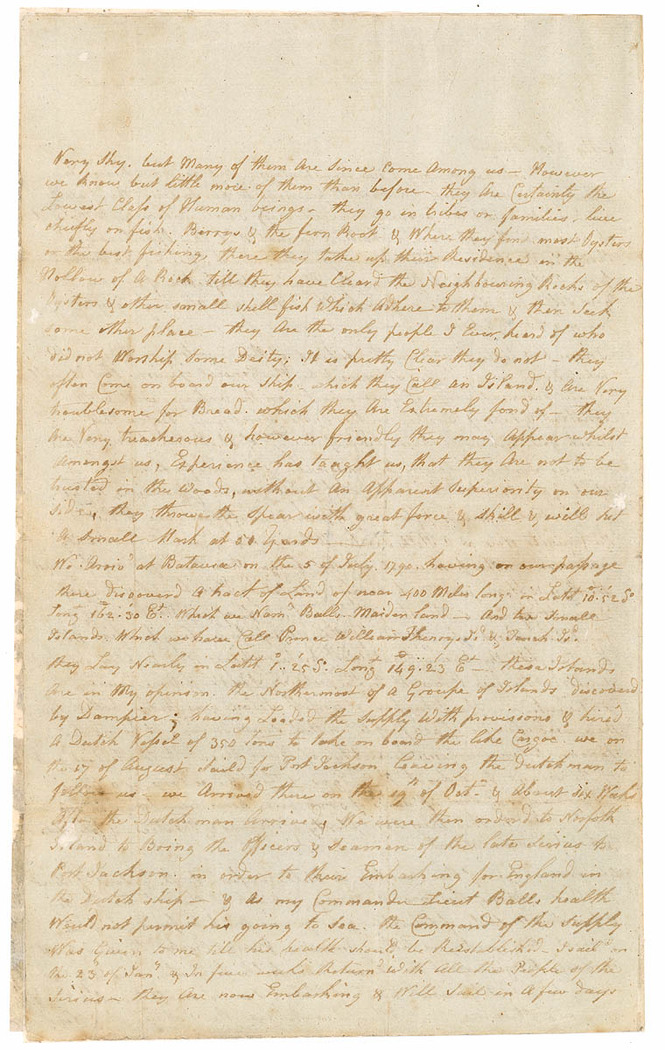 Very Shy. but Many of them Are Since come Among us — However
we know but little more of them than before — they Are Certainly the
Lowest Class of Human beings — they go in tribes or families. live
chiefly on fish. Berrys & the fern Root & Where they find most Oysters
or the best fishing, there they take up their Residence in the
Hollow of A Rock. till they have Cleard the Neighbouring Rocks of the
Oysters & other small shell fish Which Adhere to them & then Seek
some other place — they Are the only people I Ever heard of who
did not Worship Some Deity; It is pretty Clear they do not — they
often Come on board our Ship — which they Call an Island. & Are Very
troublesome for Bread. which they Are Extremely fond of — they
Are Very treacherous & however friendly they may Appear whilst
Amongst us, Experience has taught us, that they Are not to be
trusted in the Woods, without An Apparent Superiority on our
Side, they throw the Spear with great force & Skill & will hit
A Small Mark at 50 Yards —
We Arriv'd at Batavia on the 5 of July. 1790. having on our passage
there discovered A tract of Land of near 400 Miles long in Latd 10°.52 So
Long 162.30 Et. Which we Nam'd Balls Maiden land — And two Small
Islands Which we have Call Prince William Henry Is. & Tench Is.
they Lay Nearly in Latd 1°.. 25 S. Long 149.23 Et — these Islands
Are in My opinion the Northermost of A Groupe of Islands discoverd
by Dampier; having Loaded the Supply With provisons & hired
A Dutch Vessel of 350 Tons to take on board the like Cargoe we on
the 17 of August Saild for Port Jackson Leaving the Dutchman to
follow us — we Arrived there on the 19th of Octr & About Six Weeks
After the Dutchman Arrived, We were then orderd to Norfolk
Island to Bring the Officers & Seamen of the late Sirius to
Port Jackson. in order to their Embarking for England in
the Dutch Ship — & As my Commander Lieut Balls health
Would not permit his going to Sea. the Command of the Supply
Was Given to me till his health should be Reestablish'd. I sail'd on
the 23 of Jany & In few weeks Return'd with All the People of the
Sirius — they Are now Embarking & Will Sail in A few days